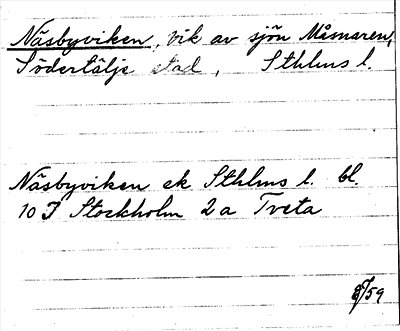 Näsbyviken, vik av sjön Måsnaren,
Södertälje stad, Sthlms l.
Näsbyviken ek Sthlms l. bl.
10 I Stockholm 2a Tveta
8/59